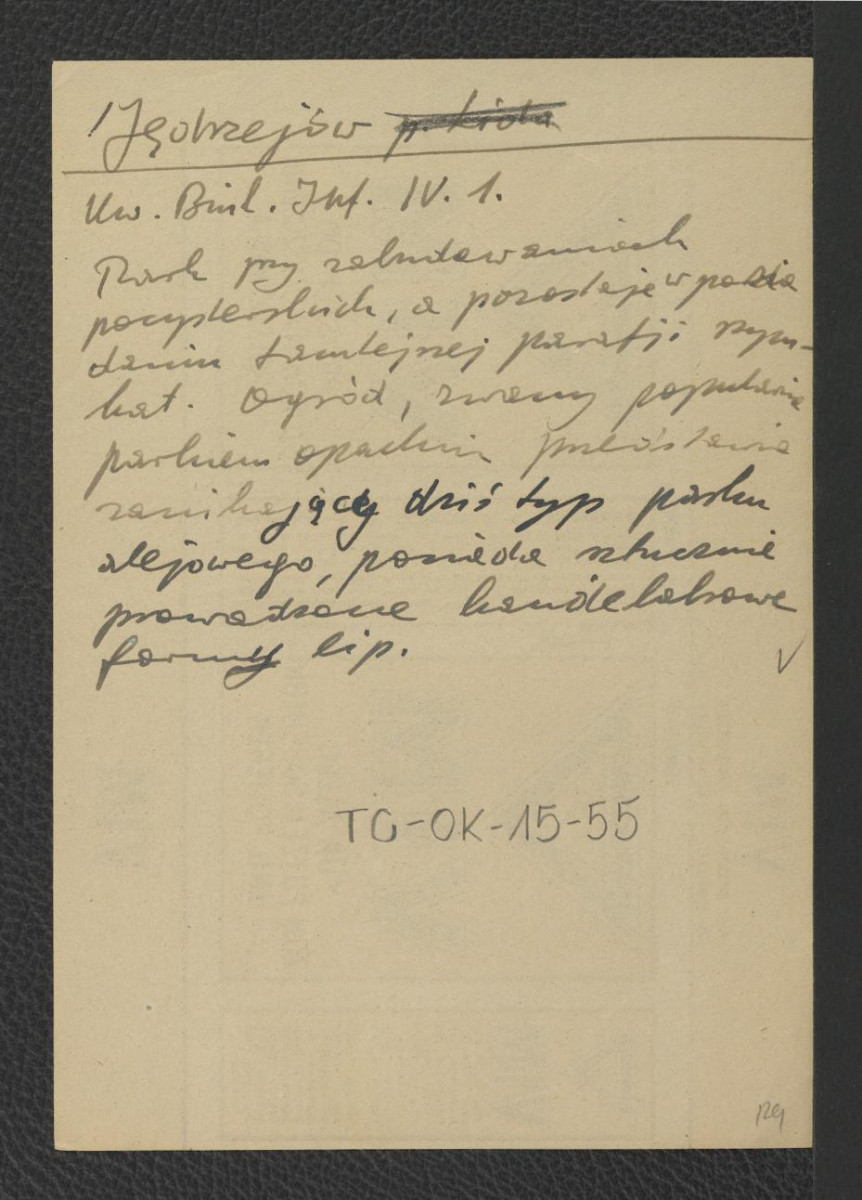 Jędrzejów
Kw. Biul. Inf. IV. 1.
Park przy zabudowaniach
pocysterskich, a pozostaje w posia
daniu tamtejszej parafji rzym-
kat. Ogród, zwany popularnie
parkiem opackim przedstawia
zanikający dziś typ parku
alejowego, posiada sztucznie
prowadzone kandelabrowe
formy lip.
TG-OK-15-55